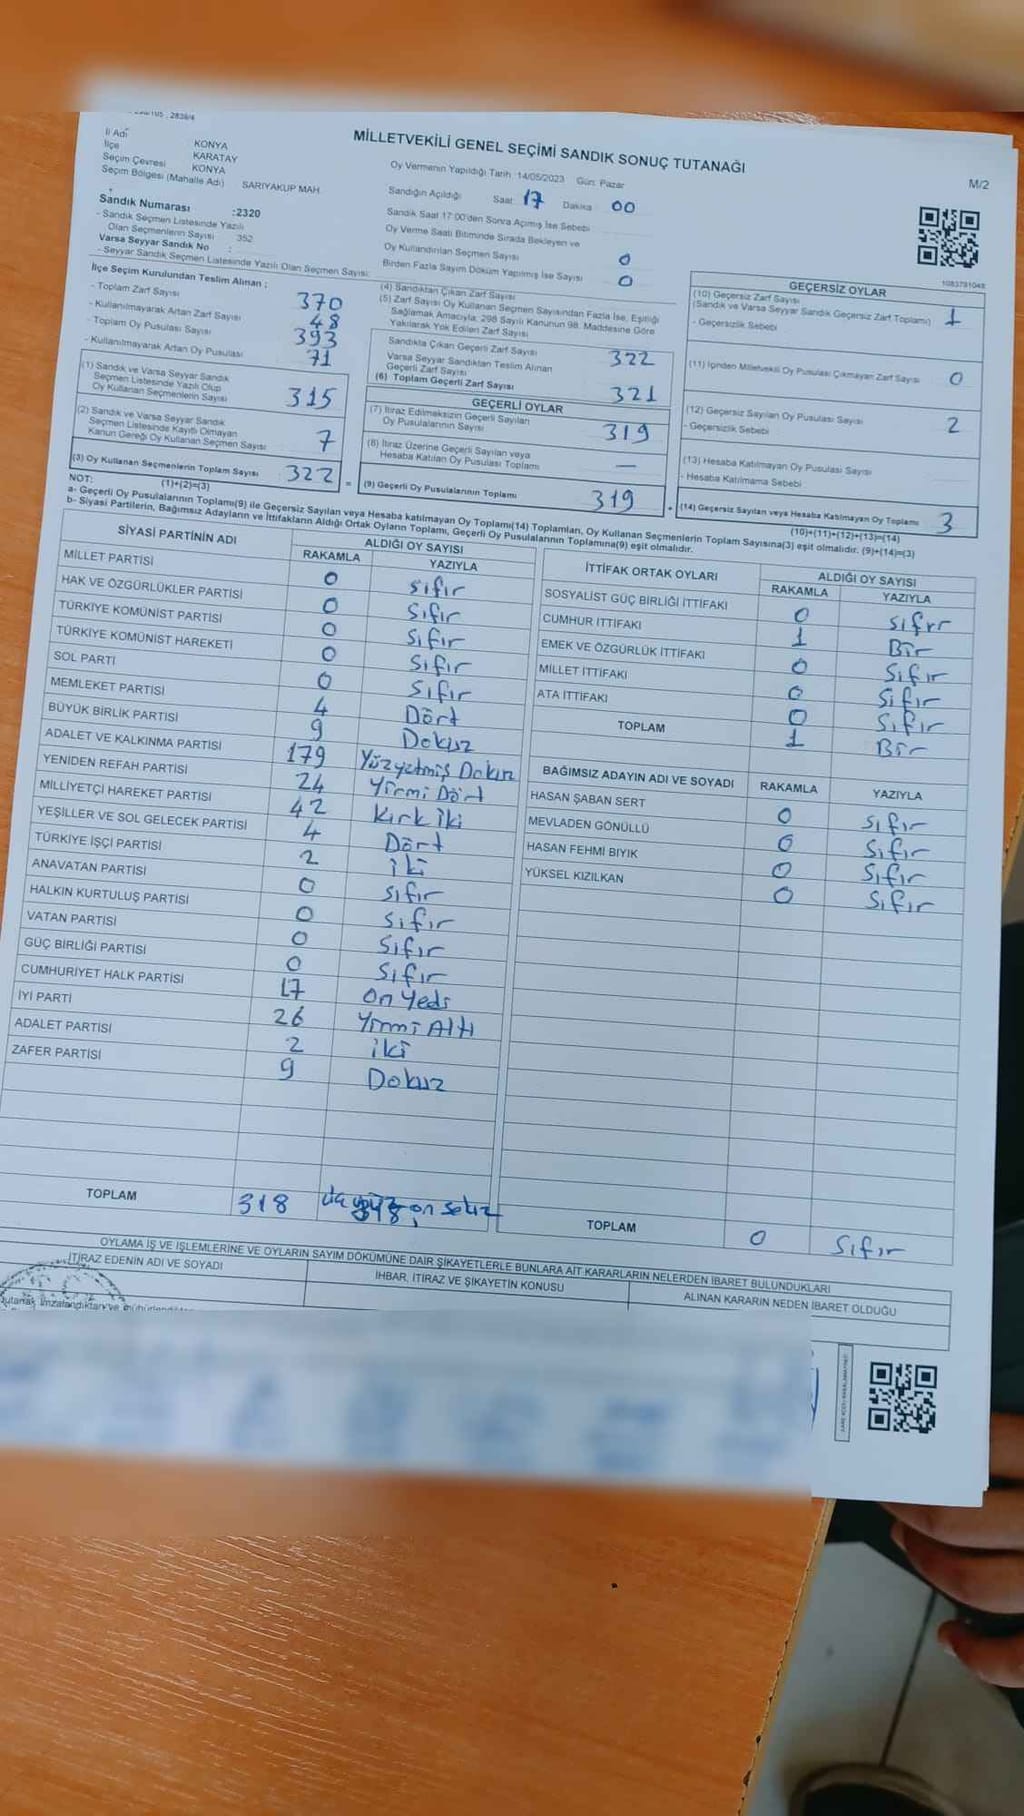 MİLLETVEKİLİ GENEL SEÇİMİ SANDIK SONUÇ TUTANAĞI
M/2
İl Adı KONYA
İlçe KARATAY
Seçim Çevresi KONYA
Seçim Bölgesi (Mahalle Adı) SARIYAKUP MAH.
Sandık Numarası :2320
- Sandık Seçmen Listesinde Yazılı
Olan Seçmenlerin Sayısı 352
Varsa Seyyar Sandık No :
- Seyyar Sandık Seçmen Listesinde Yazılı Olan Seçmen Sayısı:
Oy Vermenin Yapıldığı Tarih :14/05/2023 Gün: Pazar
Sandığın Açıldığı Saat: 17 Dakika: 00
Sandık Saat 17:00'den Sonra Açımış İse Sebebi
Oy Verme Saati Bitiminde Sırada Bekleyen ve
Oy Kullandırılan Seçmen Sayısı 0
Birden Fazla Sayım Döküm Yapılmış İse Sayısı 0
İlçe Seçim Kurulundan Teslim Alınan ;
- Toplam Zarf Sayısı 370
- Kullanılmayarak Artan Zarf Sayısı 48
- Toplam Oy Pusulası Sayısı 393
- Kullanılmayarak Artan Oy Pusulası 71
(1) Sandık ve Varsa Seyyar Sandık
Seçmen Listesinde Yazılı Olup
Oy Kullanan Seçmenlerin Sayısı 315
(2) Sandık ve Varsa Seyyar Sandık
Seçmen Listesinde Kayıtlı Olmayan
Kanun Gereği Oy Kullanan Seçmen Sayısı 7
(3) Oy Kullanan Seçmenlerin Toplam Sayısı 322
(1)+(2)=(3)
(4) Sandıktan Çıkan Zarf Sayısı
(5) Zarf Sayısı Oy Kullanan Seçmen Sayısından Fazla İse, Eşitliği
Sağlamak Amacıyla; 298 Sayılı Kanunun 98. Maddesine Göre
Yakılarak Yok Edilen Zarf Sayısı
Sandıkta Çıkan Geçerli Zarf Sayısı 322
Varsa Seyyar Sandıktan Teslim Alınan
Geçerli Zarf Sayısı
(6) Toplam Geçerli Zarf Sayısı 321
GEÇERLİ OYLAR
(7) İtiraz Edilmeksizin Geçerli Sayılan
Oy Pusulalarının Sayısı 319
(8) İtiraz Üzerine Geçerli Sayılan veya
Hesaba Katılan Oy Pusulası Toplamı —
=
(9) Geçerli Oy Pusulalarının Toplamı 319
GEÇERSİZ OYLAR
1083791048
(10) Geçersiz Zarf Sayısı
(Sandık ve Varsa Seyyar Sandık Geçersiz Zarf Toplamı) 1
- Geçersizlik Sebebi
(11) İçinden Milletvekili Oy Pusulası Çıkmayan Zarf Sayısı 0
(12) Geçersiz Sayılan Oy Pusulası Sayısı 2
- Geçersizlik Sebebi
(13) Hesaba Katılmayan Oy Pusulası Sayısı
- Hesaba Katılmama Sebebi
+
(14) Geçersiz Sayılan veya Hesaba Katılmayan Oy Toplamı 3
(10)+(11)+(12)+(13)=(14)
NOT:
a- Geçerli Oy Pusulalarının Toplamı(9) ile Geçersiz Sayılan veya Hesaba katılmayan Oy Toplamı(14) Toplamları, Oy Kullanan Seçmenlerin Toplam Sayısına(3) eşit olmalıdır. (9)+(14)=(3)
b- Siyasi Partilerin, Bağımsız Adayların ve İttifakların Aldığı Ortak Oyların Toplamı, Geçerli Oy Pusulalarının Toplamına(9) eşit olmalıdır.
SİYASİ PARTİNİN ADI ALDIĞI OY SAYISI
RAKAMLA YAZIYLA
MİLLET PARTİSİ 0 Sıfır
HAK VE ÖZGÜRLÜKLER PARTİSİ 0 Sıfır
TÜRKİYE KOMÜNİST PARTİSİ 0 Sıfır
TÜRKİYE KOMÜNİST HAREKETİ 0 Sıfır
SOL PARTİ 0 Sıfır
MEMLEKET PARTİSİ 4 Dört
BÜYÜK BİRLİK PARTİSİ 9 Dokuz
ADALET VE KALKINMA PARTİSİ 179 Yüzyetmiş Dokuz
YENİDEN REFAH PARTİSİ 24 Yirmi Dört
MİLLİYETÇİ HAREKET PARTİSİ 42 Kırk iki
YEŞİLLER VE SOL GELECEK PARTİSİ 4 Dört
TÜRKİYE İŞÇİ PARTİSİ 2 iki
ANAVATAN PARTİSİ 0 Sıfır
HALKIN KURTULUŞ PARTİSİ 0 Sıfır
VATAN PARTİSİ 0 Sıfır
GÜÇ BİRLİĞİ PARTİSİ 0 Sıfır
CUMHURİYET HALK PARTİSİ 17 On Yedi
İYİ PARTİ 26 Yirmi Altı
ADALET PARTİSİ 2 iki
ZAFER PARTİSİ 9 Dokuz
TOPLAM 318 on sekiz
İTTİFAK ORTAK OYLARI ALDIĞI OY SAYISI
RAKAMLA YAZIYLA
SOSYALİST GÜÇ BİRLİĞİ İTTİFAKI 0 Sıfır
CUMHUR İTTİFAKI 1 Bir
EMEK VE ÖZGÜRLÜK İTTİFAKI 0 Sıfır
MİLLET İTTİFAKI 0 Sıfır
ATA İTTİFAKI 0 Sıfır
TOPLAM 1 Bir
BAĞIMSIZ ADAYIN ADI VE SOYADI RAKAMLA YAZIYLA
HASAN ŞABAN SERT 0 Sıfır
MEVLADEN GÖNÜLLÜ 0 Sıfır
HASAN FEHMİ BIYIK 0 Sıfır
YÜKSEL KIZILKAN 0 Sıfır
TOPLAM 0 Sıfır
OYLAMA İŞ VE İŞLEMLERİNE VE OYLARIN SAYIM DÖKÜMÜNE DAİR ŞİKAYETLERLE BUNLARA AİT KARARLARIN NELERDEN İBARET BULUNDUKLARI
İTİRAZ EDENİN ADI VE SOYADI
İHBAR, İTİRAZ VE ŞİKAYETİN KONUSU
ALINAN KARARIN NEDEN İBARET OLDUĞU